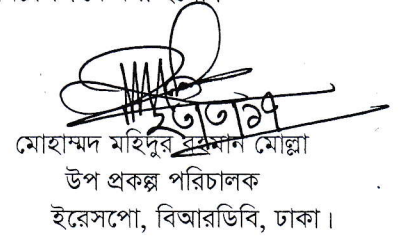 মোহাম্মদ মহিদুর রহমান মোল্লা
উপ প্রকল্প পরিচালক
ইরেসপো, বিআরডিবি, ঢাকা।